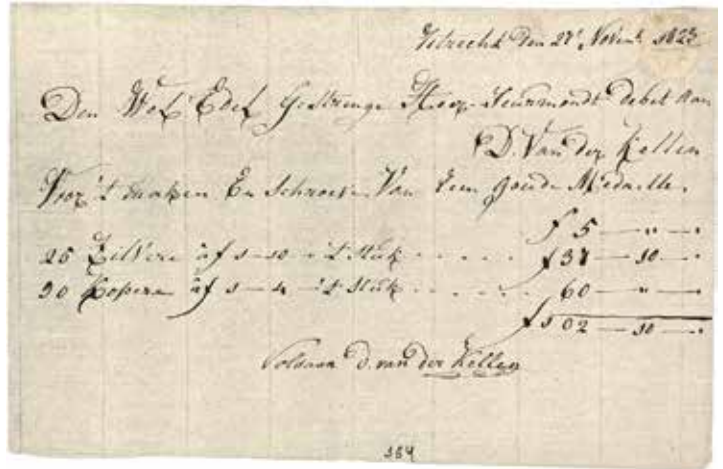 Utrecht den 27 Novemb. 1823
Den Wel Edel Gestrenge Heer Suermondt debet aan
D. Van der Kellen
Voor 't maken En Schroeven Van Een goude Medaille.
f 5 — " —
25 Zilvere af 1-10 - 't stuk . . . . f 37 — 10 —
50 Kopere af 1-4 - 't stuk . . . . . 60 — " —
f 102 — 10 —
Voldaan D. van der Kellen